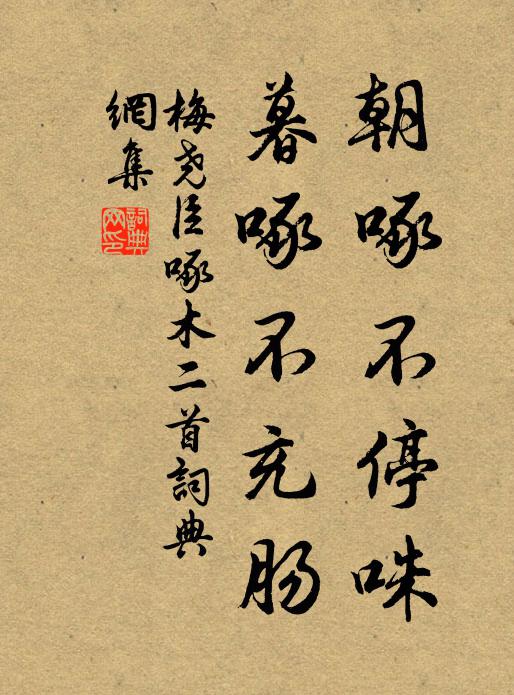 朝啄不停咮
暮啄不充肠
梅尧臣啄木二首詞典
網集
詞典
网印